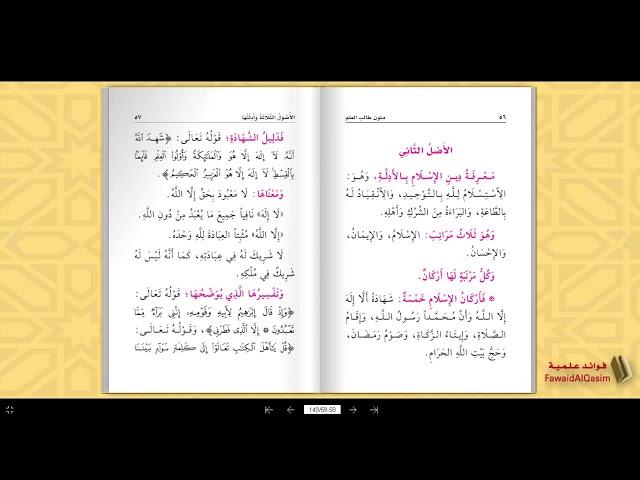 ٥٦
متون طالب العلم
الأَصْلُ الثَّانِي
مَعْرِفَةُ دِينِ الإِسْلَامِ بِالأَدِلَّةِ، وَهُوَ:
الاسْتِسْلَامُ لِلَّهِ بِالتَّوْحِيدِ، وَالانْقِيَادُ لَهُ
بِالطَّاعَةِ، وَالبَرَاءَةُ مِنَ الشِّرْكِ وَأَهْلِهِ.
وَهُوَ ثَلَاثُ مَرَاتِبَ: الإِسْلَامُ، وَالإِيمَانُ،
وَالإِحْسَانُ.
وَكُلُّ مَرْتَبَةٍ لَهَا أَرْكَانٌ.
* فَأَرْكَانُ الإِسْلَامِ خَمْسَةٌ: شَهَادَةُ أَلَّا إِلَهَ
إِلَّا اللَّهُ وَأَنَّ مُحَمَّداً رَسُولُ اللَّهِ، وَإِقَامُ
الصَّلَاةِ، وَإِيتَاءُ الزَّكَاةِ، وَصَوْمُ رَمَضَانَ،
وَحَجُّ بَيْتِ اللَّهِ الحَرَامِ.
الأصول الثلاثة وأدلتها
٥٧
فَدَلِيلُ الشَّهَادَةِ؛ قَوْلُهُ تَعَالَى: ﴿شَهِدَ ٱللَّهُ
أَنَّهُۥ لَآ إِلَٰهَ إِلَّا هُوَ وَٱلْمَلَٰٓئِكَةُ وَأُو۟لُوا۟ ٱلْعِلْمِ قَآئِمًۢا
بِٱلْقِسْطِ لَآ إِلَٰهَ إِلَّا هُوَ ٱلْعَزِيزُ ٱلْحَكِيمُ﴾.
وَمَعْنَاهَا: لَا مَعْبُودَ بِحَقٍّ إِلَّا اللَّهُ.
«لَا إِلَهَ» نَافِياً جَمِيعَ مَا يُعْبَدُ مِنْ دُونِ اللَّهِ.
«إِلَّا اللَّهُ» مُثْبِتاً العِبَادَةَ لِلَّهِ وَحْدَهُ.
لَا شَرِيكَ لَهُ فِي عِبَادَتِهِ، كَمَا أَنَّهُ لَيْسَ لَهُ
شَرِيكٌ فِي مُلْكِهِ.
وَتَفْسِيرُهَا الَّذِي يُوَضِّحُهَا؛ قَوْلُهُ تَعَالَى:
﴿وَإِذْ قَالَ إِبْرَٰهِيمُ لِأَبِيهِ وَقَوْمِهِۦٓ إِنَّنِى بَرَآءٌ مِّمَّا
تَعْبُدُونَ * إِلَّا ٱلَّذِى فَطَرَنِى﴾، وَقَوْلُهُ تَعَالَى:
﴿قُلْ يَٰٓأَهْلَ ٱلْكِتَٰبِ تَعَالَوْا۟ إِلَىٰ كَلِمَةٍ سَوَآءٍۭ بَيْنَنَا
فوائد علمية
FawaidAlQasim
149/59-58